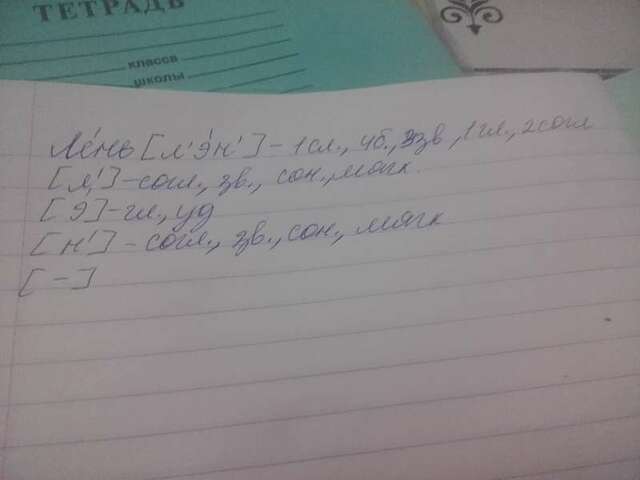 ТЕТРАДЬ
класса
школы
Ле́нь [л'э́н'] – 1 сл., 4б., 3зв, 1 гл., 2 согл
[л'] – согл., зв., сон., мягк.
[э] – гл., уд
[н'] – согл., зв., сон., мягк
[ – ]